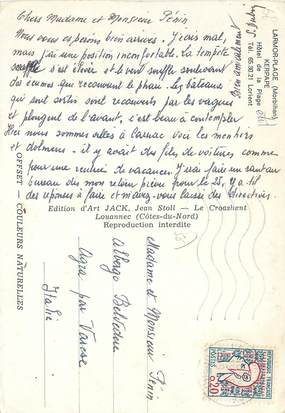 Chers Madame et Monsieur Pénin
Nous vous espérons bien arrivés. J'écris mal,
mais j'ai une position inconfortable. La tempête
souffle s'est élevée et le vent souffle soulevant
des écumes qui recouvrent le phare. Les bateaux
qui sont sortis sont recouverts par les vagues
et plongent de l'avant, c'est beau à contempler.
Hier nous sommes allés à Carnac voir les menhirs
et dolmens. il y avait des files de voitures comme
pour une rentrée de vacances. J'irai faire un saut au
bureau dès mon retour prévu pour le 25, s'il y a
des réponses à faire et m'avez-vous laissé des directives.
LARMOR-PLAGE (Morbihan)
KERPAPE
Hôtel de la Plage
Tél. 65.30.21 Lorient
OFFSET — COULEURS NATURELLES
Edition d'Art JACK, Jean Stoll - Le Croashent
Louannec (Côtes-du-Nord)
Reproduction interdite
Madame et Monsieur Pénin
albergo Belvédère
par Varese
Italie
REPUBLIQUE FRANCAISE
POSTES
0,20